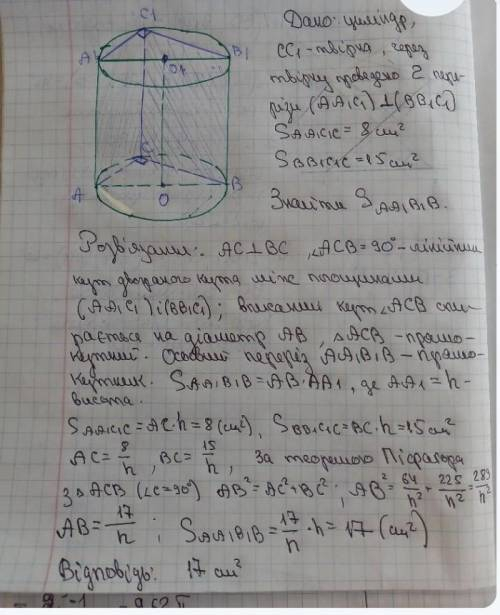 C1
A1
B1
O1
C
A
O
B
Дано: циліндр,
CC1 - твірна, через
твірну проведено 2 пере-
різи (AA1C1) ⊥ (BB1C1)
SAA1C1C = 8 см²
SBB1C1C = 15 см²
Знайти SAA1B1B.
Розв'язання: AC⊥BC, ∠ACB=90° - лінійний
кут двогранного кута між площинами
(AA1C1) і (BB1C1); вписаний кут ∠ACB спи-
рається на діаметр AB, △ACB - прямо-
кутний. Осьовий переріз AA1B1B - прямо-
кутник. SAA1B1B = AB·AA1, де AA1 = h -
висота.
SAA1C1C = AC·h = 8 (см²), SBB1C1C = BC·h = 15 см²
AC = 8/h, BC = 15/h, За теоремою Піфагора
з △ACB (∠C=90°) AB² = AC² + BC²; AB² = 64/h² + 225/h² = 289/h²
AB = 17/h; SAA1B1B = 17/h · h = 17 (см²)
Відповідь: 17 см²